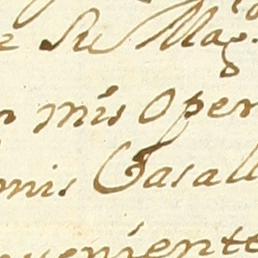 e Su Mag.
n mis Oper
mis Casall
nveniente